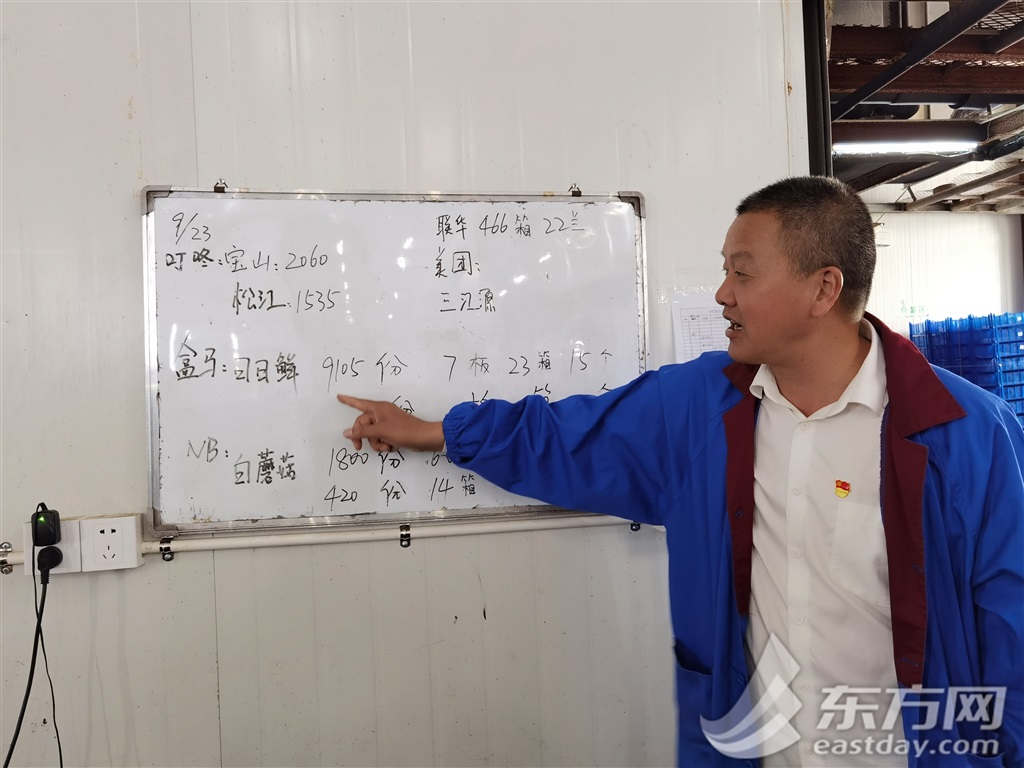 9/23
叮咚:宝山:2060
松江:1535
联华 466箱 22兰
美团:
三江源
盒马:日日鲜 9105份 7板 23箱 15个
份 箱
NB:白蘑菇 1800份
420份 14箱
东方网
eastday.com